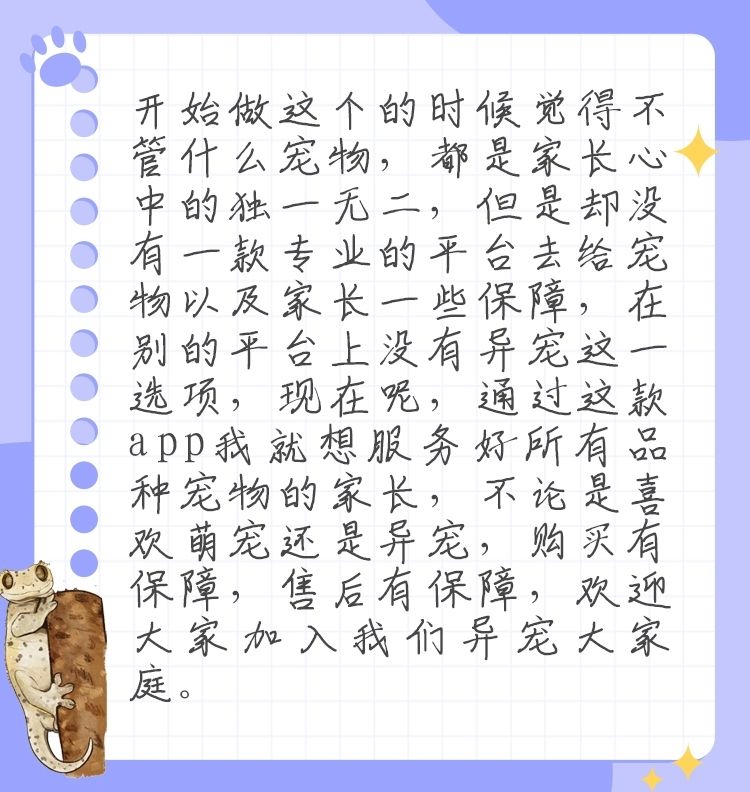 开始做这个的时候觉得不
管什么宠物，都是家长心
中的独一无二，但是却没
有一款专业的平台去给宠
物以及家长一些保障，在
别的平台上没有异宠这一
选项，现在呢，通过这款
app我就想服务好所有品
种宠物的家长，不论是喜
欢萌宠还是异宠，购买有
保障，售后有保障，欢迎
大家加入我们异宠大家
庭。